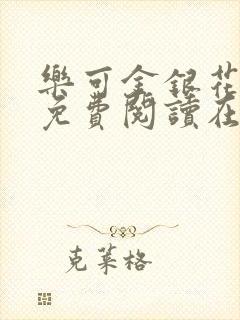 樂可金銀花
免費閱讀在
克萊格